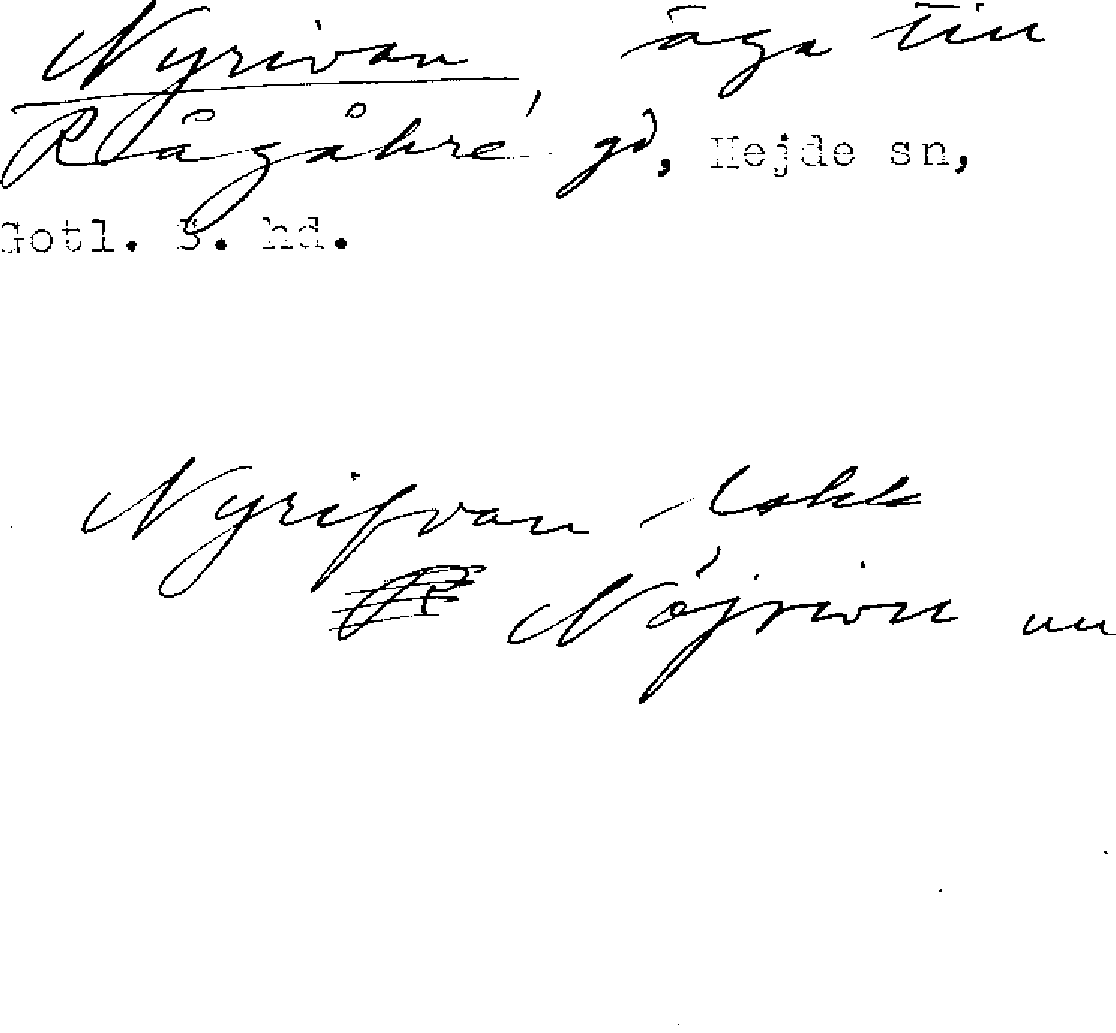 Nyrivan, äga till
Rågåkre gd, Hejde sn,
Gotl. S. hd.
Nyrifvan
Nöjrivu uu